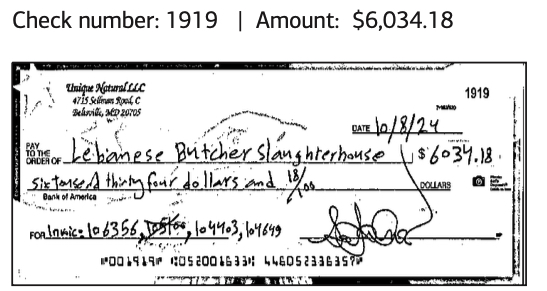 Check number: 1919 | Amount: $6,034.18
Unique Natural LLC
4715 Sellman Road, C
Beltsville, MD 20705
1919
DATE 10/8/24
PAY TO THE ORDER OF Lebanese Butcher Slaughterhouse $6034.18
six tousend thirty four dollars and 18/100 DOLLARS
Bank of America
FOR Invic: 106356, 104403, 104649
⑈001919⑈ ⑆052001633⑆ 446052336357⑈